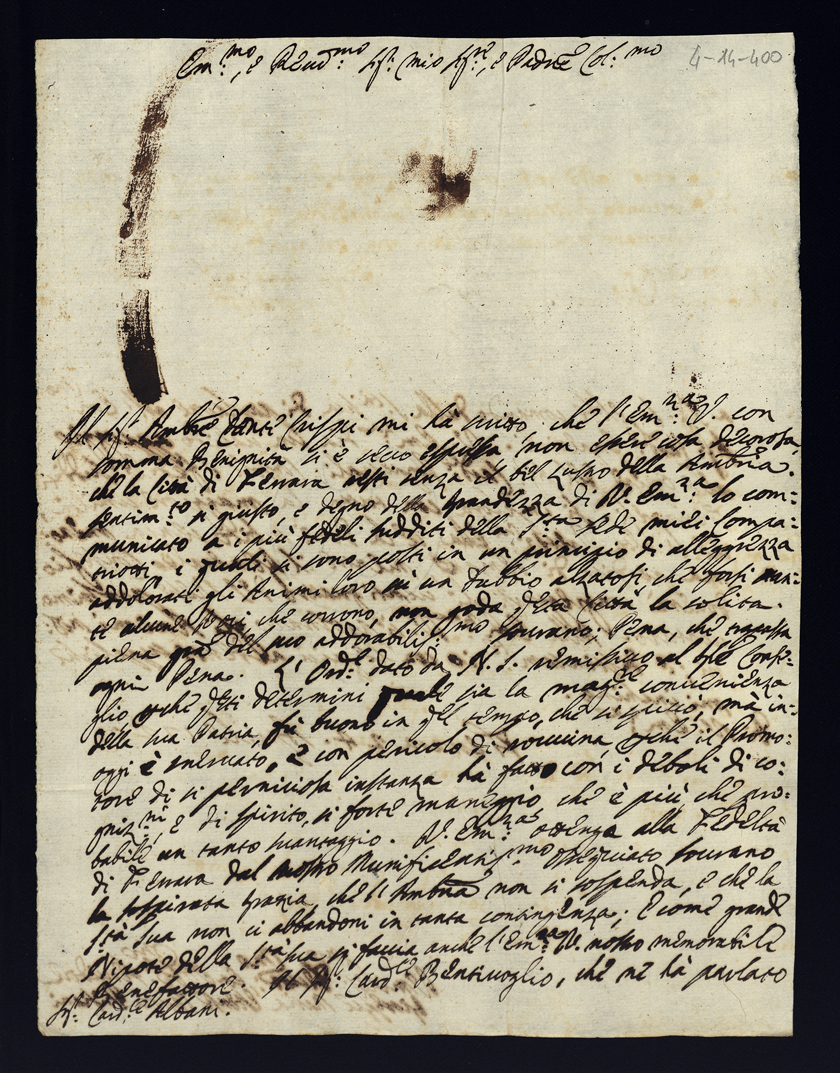 Em:mo, e Reud:mo Sig: mio Sig:re, e Padne Col:mo
4-14-400
Il Sig: Ambre Dante Crispi mi hà scritto, che l'Em:za V. con
somma Benignità si è seco espressa non essere cosa decorosa,
che la Città di Ferrara resti senza il bel Lustro della Ambria.
Sentim:to si giusto, e degno della Grandezza di V. Em:za lo com=
municato a i più fedeli sudditi della Sta Sede miei Compa=
triotti, i quali si sono posti in un principio di allegrezza
addolorati gli Animi loro in un dubbio alzatosi, che forsi
te alcune che corrono, non goda Città la solita
piena del suo addorabiliss:mo sourano; Pena, che trapassa
ogni Pena. L'Ord:e dato da N. S. remissivo al Consi=
glio determini quale sia la mag:re convenienza
della sua Patria, fù buono in tempo, che si fece, mà in=
oggi è invecchiato, e con pericolo di rouuina, il Promo=
tore di si perniciosa instanza hà fatto con i deboli di co=
gniz:ni, e di spirito, si forte maneggio, che è più, che pro=
babile un tanto suantaggio. V. Em:za ottenga alla Fedeltà
di Ferrara dal nostro Munificentiss:mo sourano
la sospirata Grazia, che l'Ambria non si sospenda, e che la
Stà Sua non ci abbandoni in tanta contingenza; E come grande
Nipote della Stà sua si faccia anche l'Em:za V. nostro memorabile
Benefattore. Il Sig: Card:le Bentivoglio, che ne hà parlato
Sig: Card:le Albani.